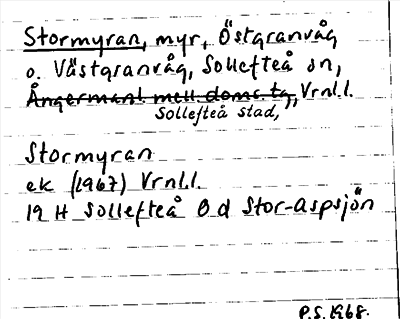 Stormyran, myr, Östgranvåg
o. Västgranvåg, Sollefteå sn,
Ångermanl. mell. doms. tg, Vrnl.l.
Sollefteå stad,
Stormyran
ek (1967) Vrnl.l.
19 H Sollefteå 8 d Stor-Aspsjön
P.S. 1968.